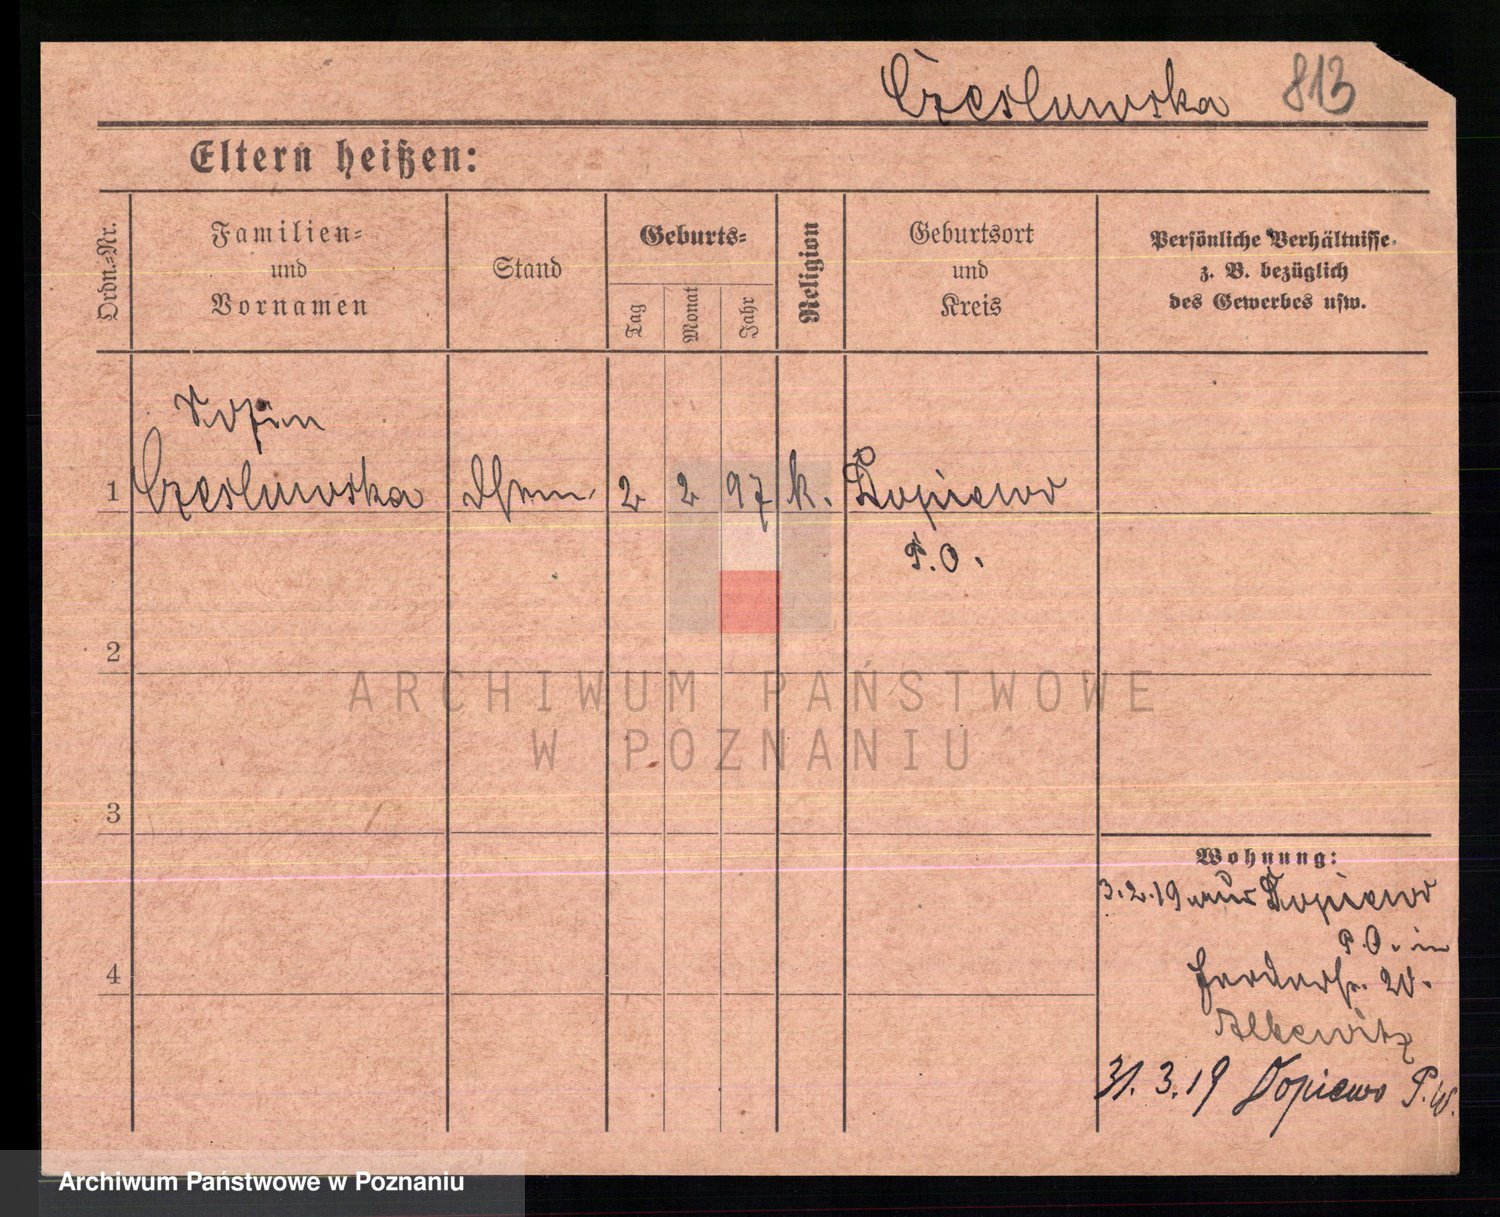 Czeslawska 813
Eltern heißen:
Ordn.-Nr.
Familien-
und
Vornamen
Stand
Geburts-
Tag
Monat
Jahr
Religion
Geburtsort
und
Kreis
Persönliche Verhältnisse
z. B. bezüglich
des Gewerbes usw.
Sofia
1 Czeslawska 2 2 97 k. Dopiewo
P.O.
2
3
4
Wohnung:
3.2.19 aus Dopiewo
P.O. in
20.
31.3.19 Dopiewo P.W.
ARCHIWUM PAŃSTWOWE
W POZNANIU
Archiwum Państwowe w Poznaniu